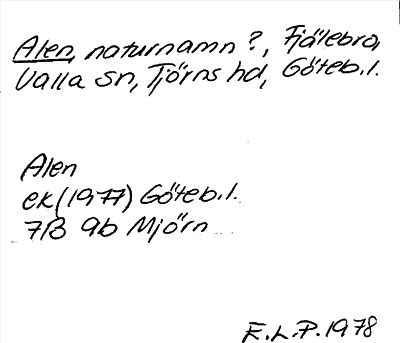 Alen, naturnamn?, Fjälebro,
Valla sn, Tjörns hd, Göteb.l.
Alen
ek (1977) Göteb.l.
7B 9b Mjörn
E.L.P. 1978